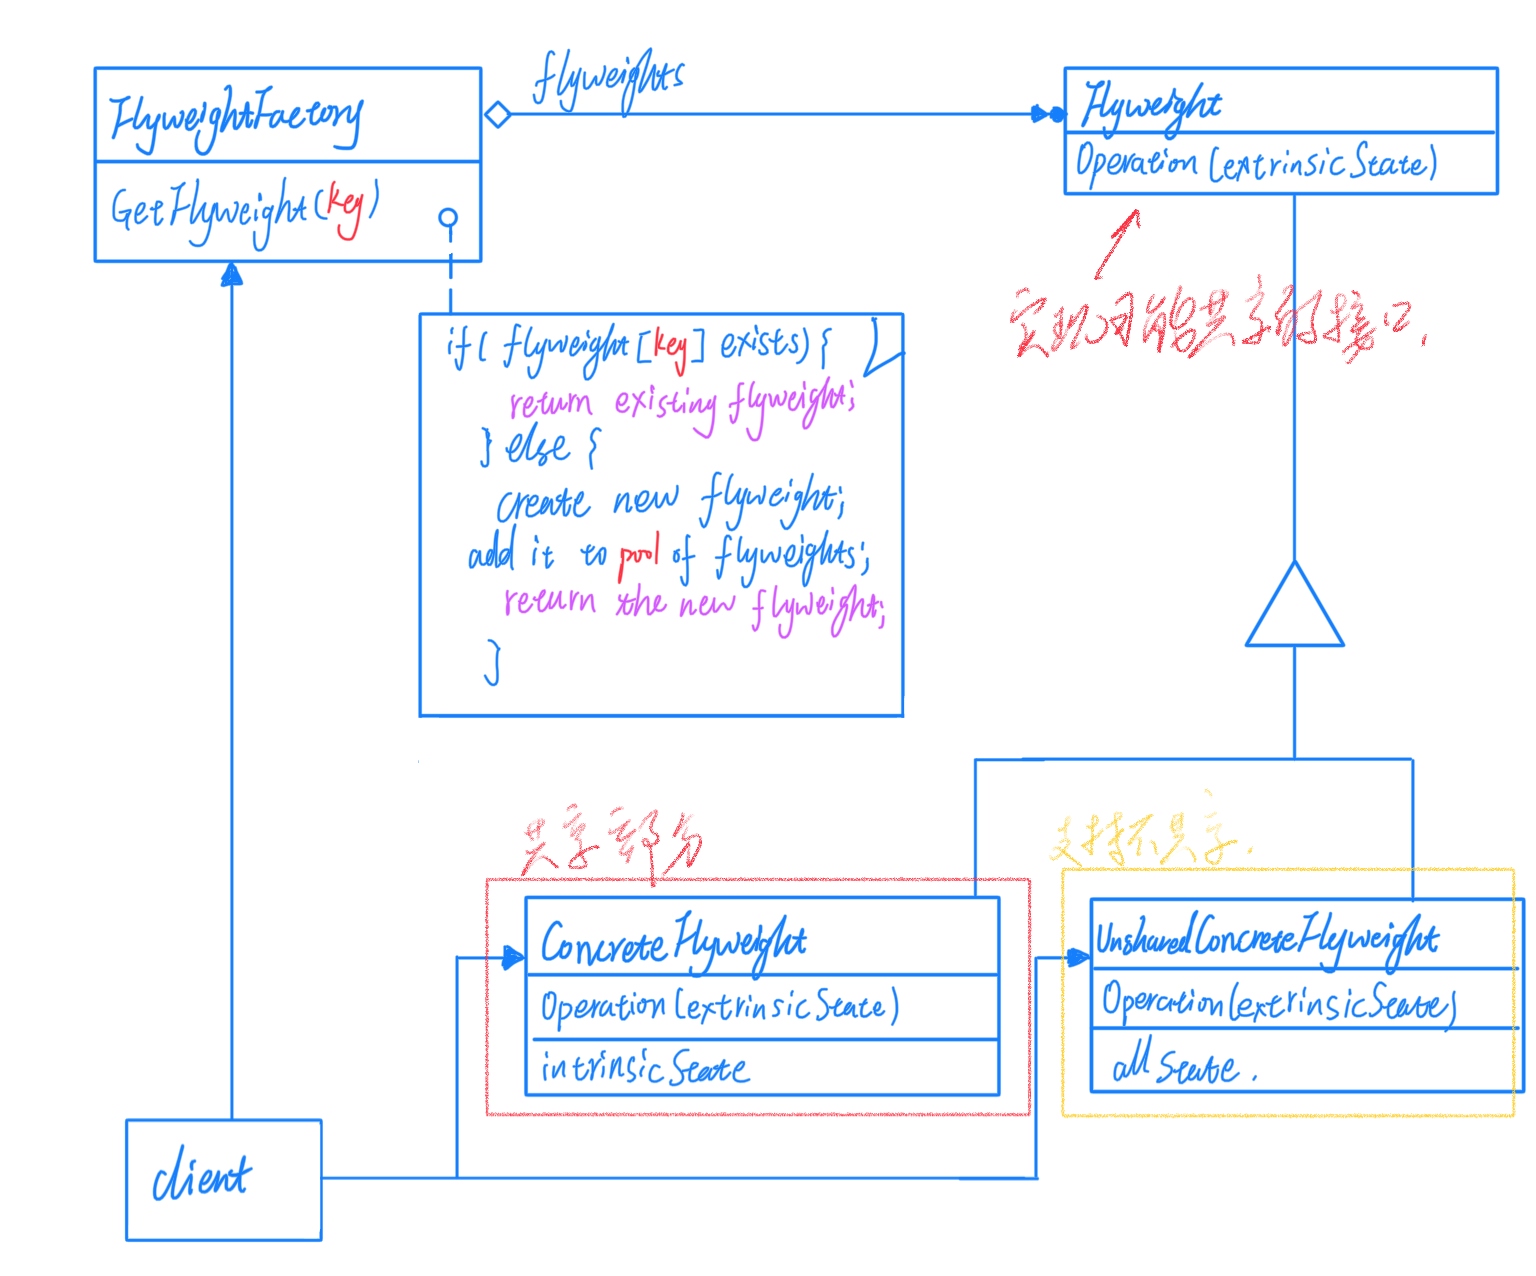 flyweights
FlyweightFactory
GetFlyweight(key)
Flyweight
Operation(extrinsicState)
实现可能共享的接口.
if( flyweight[key] exists) {
return existing flyweight;
} else {
create new flyweight;
add it to pool of flyweights;
return the new flyweight;
}
共享部分
支持不共享.
ConcreteFlyweight
Operation(extrinsicState)
intrinsicState
UnsharedConcreteFlyweight
Operation(extrinsicState)
allState.
client